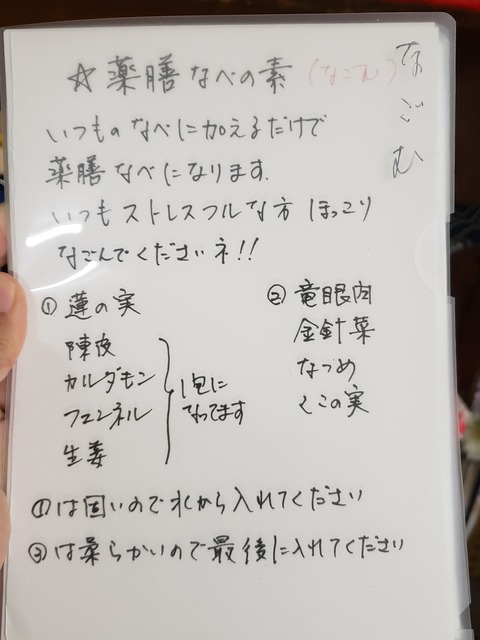 ☆薬膳なべの素 (なごむ)
なごむ
いつものなべに加えるだけで
薬膳なべになります.
いつもストレスフルな方 ほっこり
なごんでくださいネ!!
① 蓮の実
陳皮
カルダモン
フェンネル
生姜
1包に
なってます
② 竜眼肉
金針菜
なつめ
くこの実
①は固いので水から入れてください
②は柔らかいので最後に入れてください